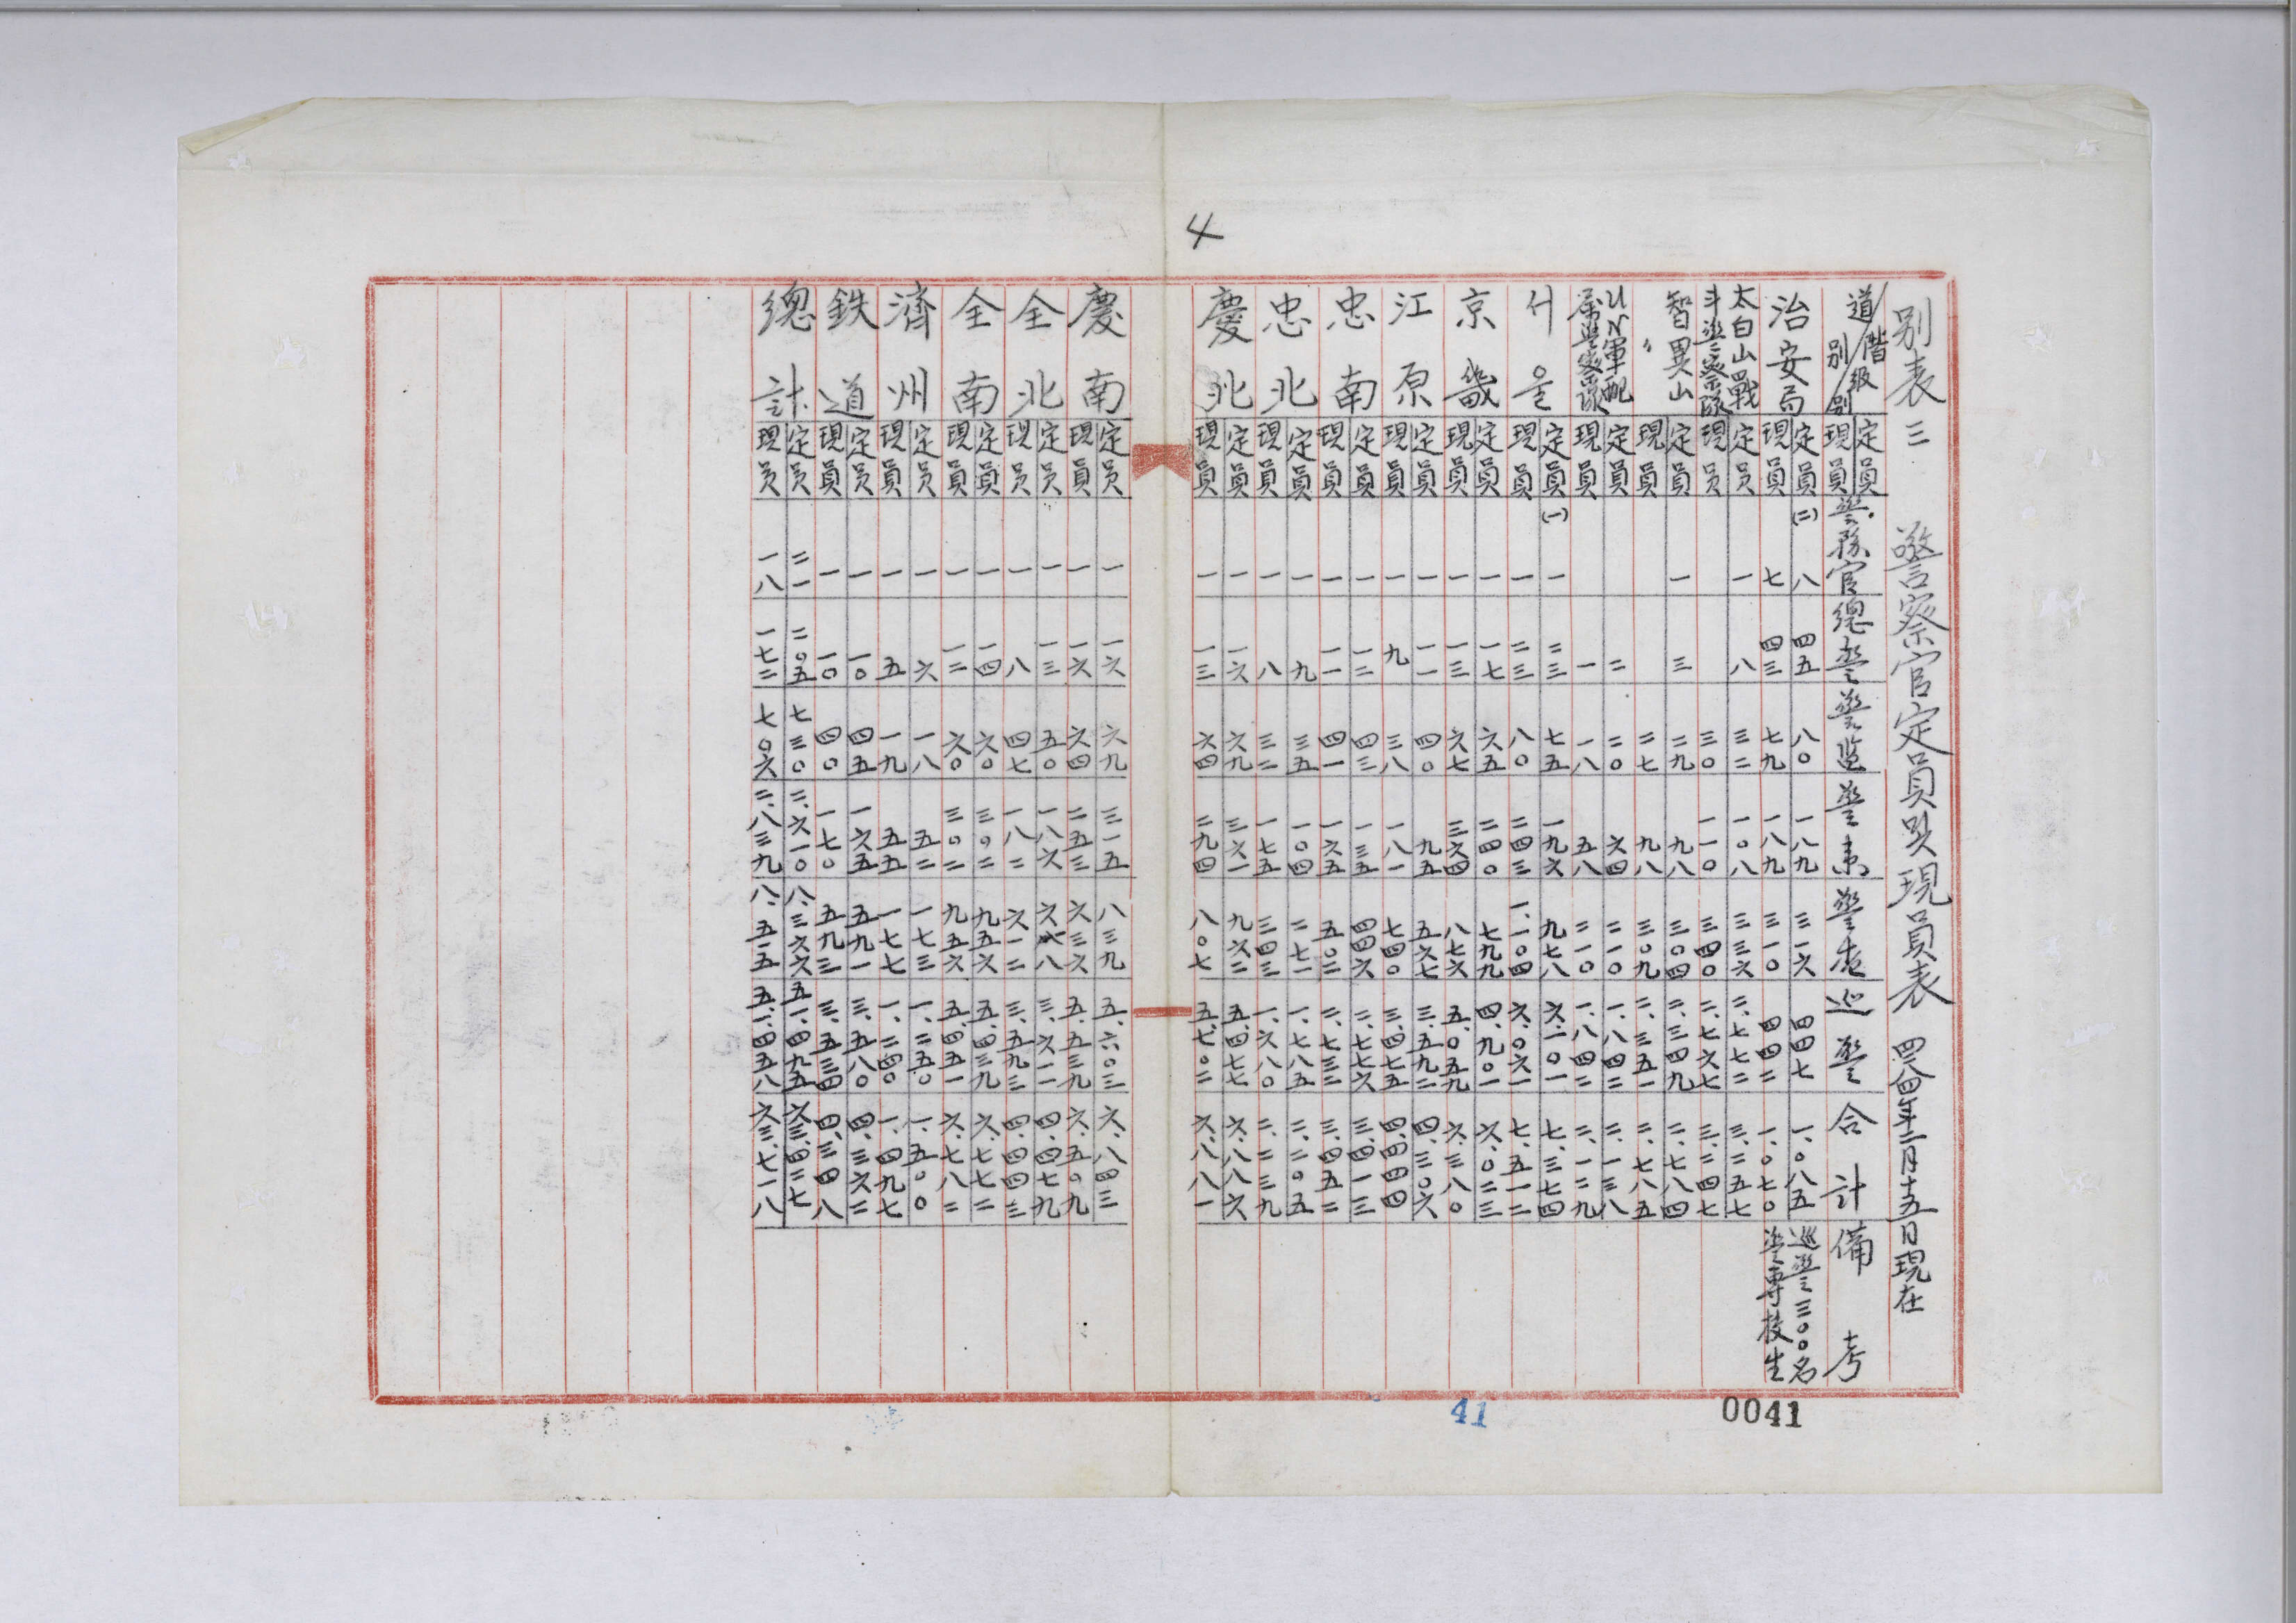 4
別表三 警察官定員與現員表 四二八四年二月十五日現在
道別 階級別 定員 現員 警務官 總警 警監 警衛 警査 巡警 合計 備考
治安局 定員 (二) 八 四五 八〇 一八九 三一六 四四七 一、〇八五 巡警三〇〇名
現員 七 四三 七九 一八九 三一〇 四四二 一、〇七〇 警専校生
太白山戰斗警察隊 定員 一 八 三二 一〇八 三三六 二、七七二 三、二五七
現員 三〇 一一〇 三四〇 二、七六七 三、二四七
智異山 〃 定員 一 三 二九 九八 三〇四 二、三四九 二、七八四
現員 二七 九八 三〇九 二、三五一 二、七八五
UN軍配属警察隊 定員 二 二〇 六四 二一〇 一、八四二 二、一三八
現員 一 一八 五八 二一〇 一、八四二 二、一二九
서울 定員 (一) 一 二三 七五 一九六 九七八 六、一〇一 七、三七四
現員 一 二三 八〇 二四三 一、一〇四 六、〇六一 七、五一二
京畿 定員 一 一七 六五 二四〇 七九九 四、九〇一 六、〇二三
現員 一 一三 六七 三六四 八七六 五、〇五九 六、三八〇
江原 定員 一 一一 四〇 九五 五六七 三、五九二 四、三〇六
現員 一 九 三八 一八一 七四〇 三、四七五 四、四四四
忠南 定員 一 一二 四三 一三五 四四六 二、七七六 三、四一三
現員 一 一一 四一 一六五 五〇二 二、七三二 三、四五二
忠北 定員 一 九 三五 一〇四 二七一 一、七八五 二、二〇五
現員 一 八 三二 一七五 三四三 一、六八〇 二、二三九
慶北 定員 一 一六 六九 三六一 九六二 五、四七七 六、八八六
現員 一 一三 六四 二九四 八〇七 五、七〇二 六、八八一
慶南 定員 一 一六 六九 三一五 八三九 五、六〇三 六、八四三
現員 一 一六 六四 二五三 六三六 五、五三九 六、五〇九
全北 定員 一 一三 五〇 一八六 六一八 三、六一一 四、四七九
現員 一 八 四七 一八二 六一二 三、五九三 四、四四三
全南 定員 一 一四 六〇 三〇二 九五六 五、四三九 六、七七二
現員 一 一二 六〇 三〇二 九五六 五、四五一 六、七八二
濟州 定員 一 六 一八 五二 一七三 一、二五〇 一、五〇〇
現員 一 五 一九 五五 一七七 一、二四〇 一、四九七
鉄道 定員 一 一〇 四五 一六五 五九一 三、五八〇 四、三六二
現員 一 一〇 四〇 一七〇 五九三 三、五三四 四、三四八
總計 定員 二一 二〇五 七三〇 二、六一〇 八、三六六 五一、四九五 六三、四二七
現員 一八 一七二 七〇六 二、八三九 八、五二五 五一、四五八 六三、七一八
41
0041